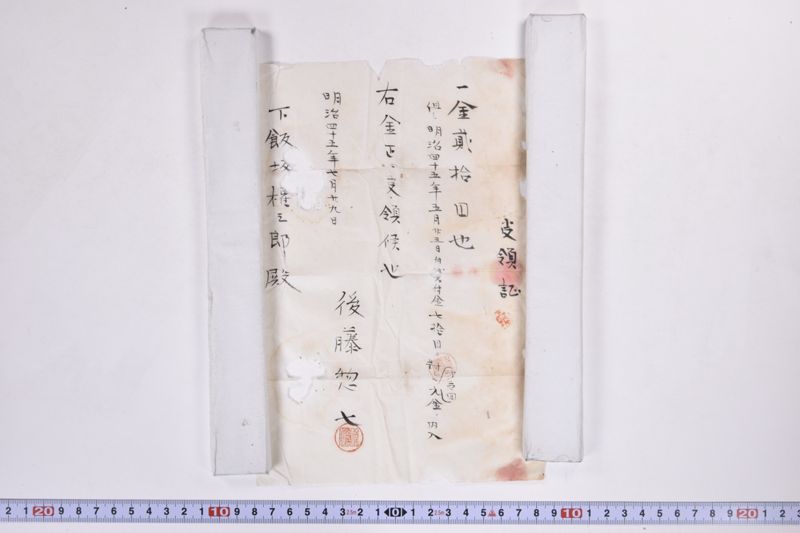 受領証
一金貳拾円也
但明治四十五年五月廿五日付貸付金七拾円対入金内入
右金正ニ受領候也
明治四十五年七月十九日
後藤惣七
下飯坂権三郎殿
2 1 20 9 8 7 6 5 4 3 2 1 10 9 8 7 6 5 4 3 2 1 0 1 2 3 4 5 6 7 8 9 10 1 2 3 4 5 6 7 8 9 20 1 2 3